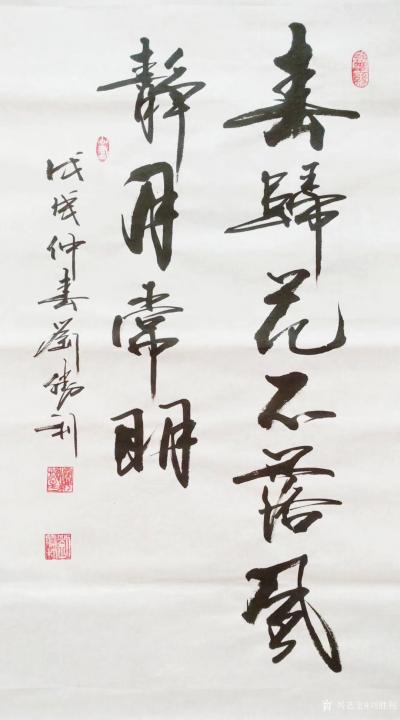 春歸花不落風
靜月常明
戊戌仲春劉勝利